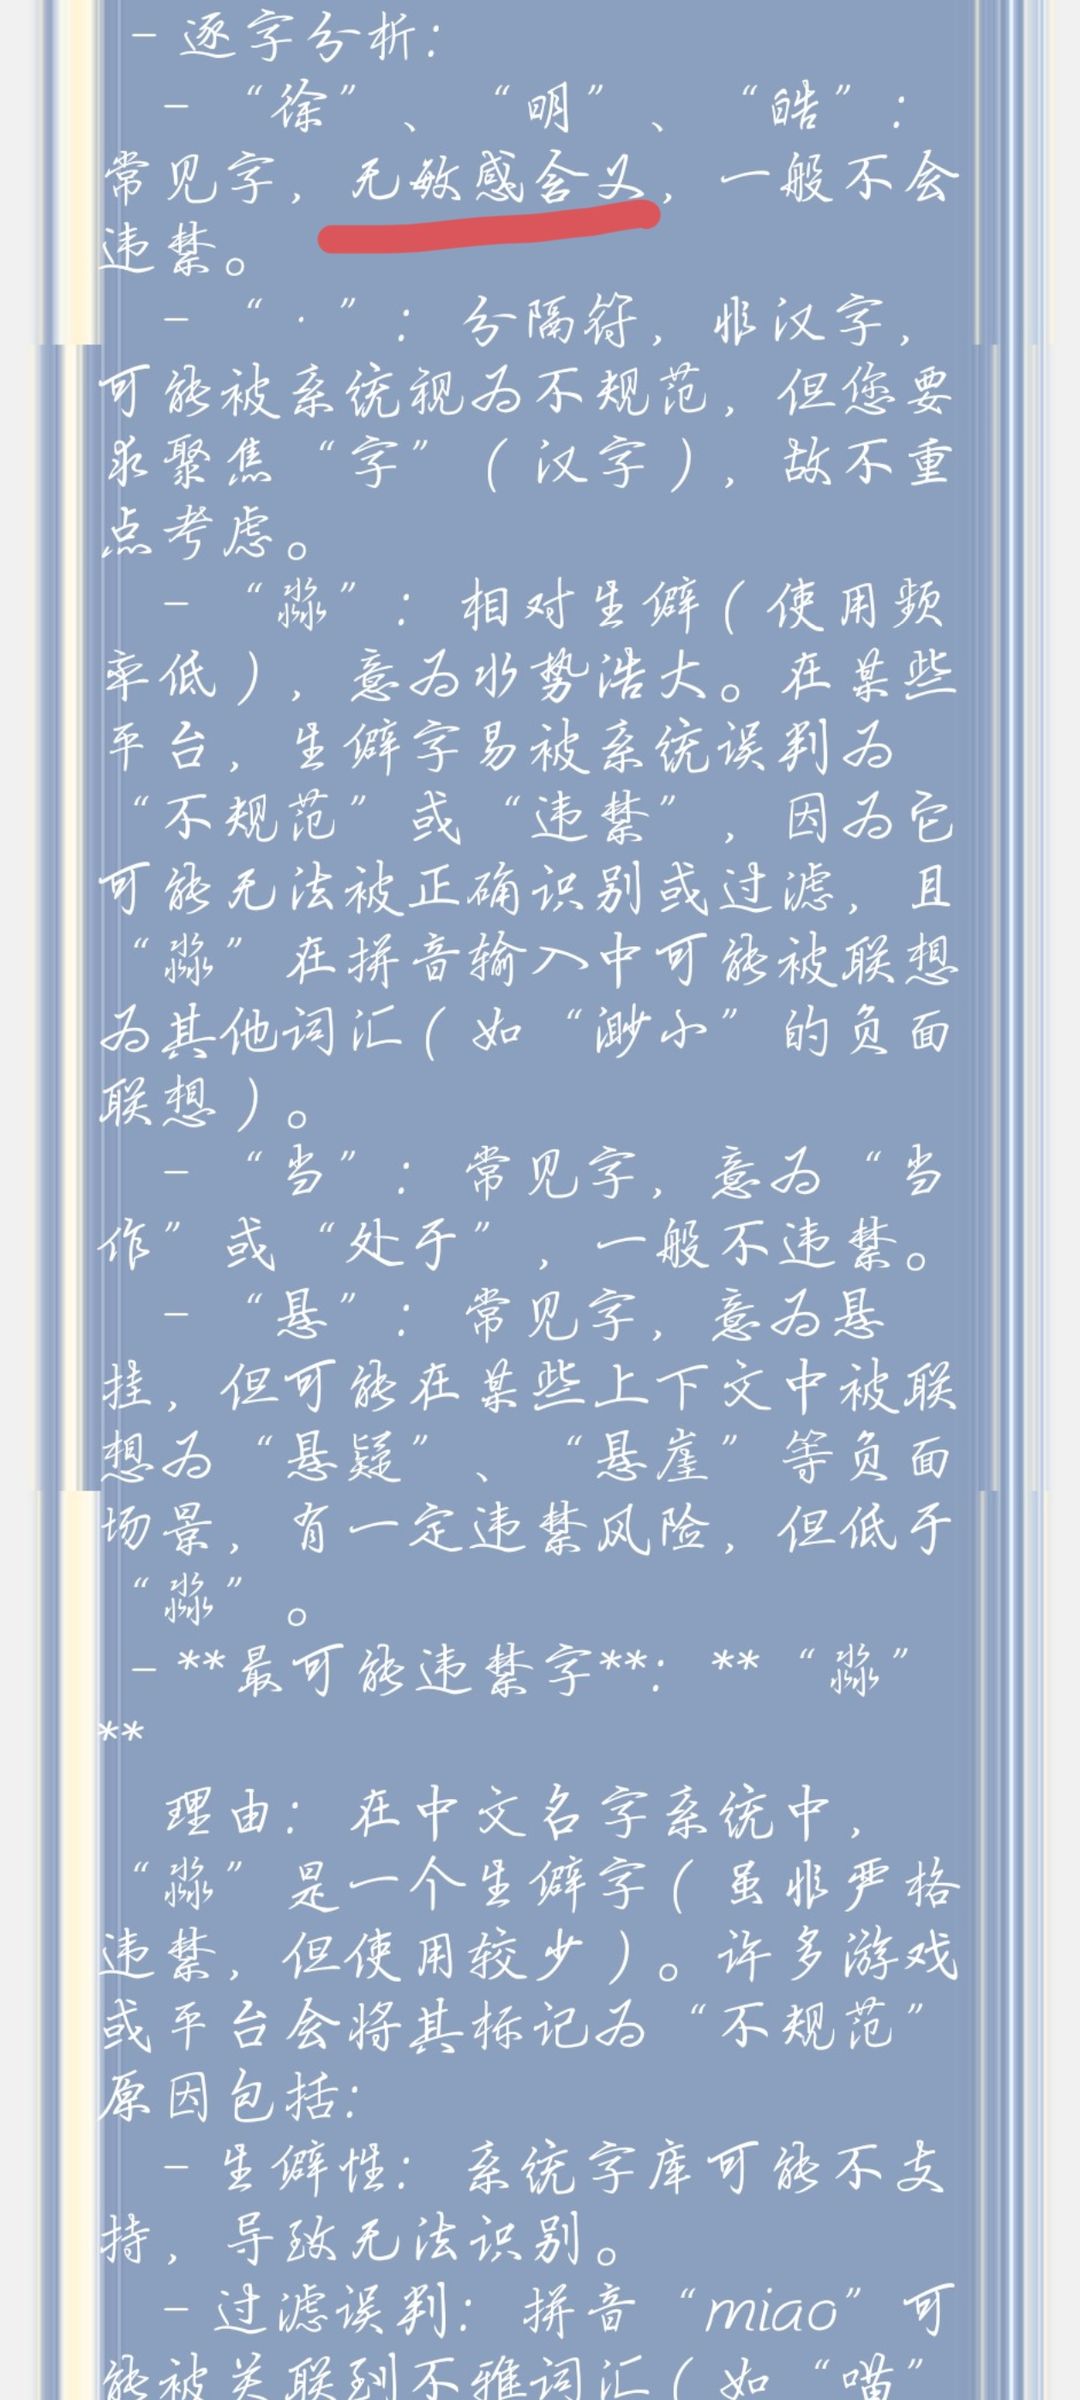 - 逐字分析：
- “徐”、“明”、“皓”：
常见字，无敏感含义，一般不会
违禁。
- “·”：分隔符，非汉字，
可能被系统视为不规范，但您要
求聚焦“字”（汉字），故不重
点考虑。
- “淼”：相对生僻（使用频
率低），意为水势浩大。在某些
平台，生僻字易被系统误判为
“不规范”或“违禁”，因为它
可能无法被正确识别或过滤，且
“淼”在拼音输入中可能被联想
为其他词汇（如“渺小”的负面
联想）。
- “当”：常见字，意为“当
作”或“处于”，一般不违禁。
- “悬”：常见字，意为悬
挂，但可能在某些上下文中被联
想为“悬疑”、“悬崖”等负面
场景，有一定违禁风险，但低于
“淼”。
- **最可能违禁字**：**“淼”
**
理由：在中文名字系统中，
“淼”是一个生僻字（虽非严格
违禁，但使用较少）。许多游戏
或平台会将其标记为“不规范”
原因包括：
- 生僻性：系统字库可能不支
持，导致无法识别。
- 过滤误判：拼音“miao”可
能被关联到不雅词汇（如“喵”